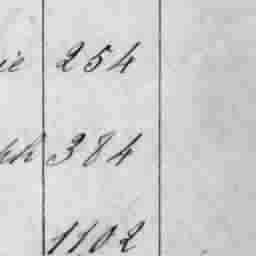 ie 254
ph 384
1102